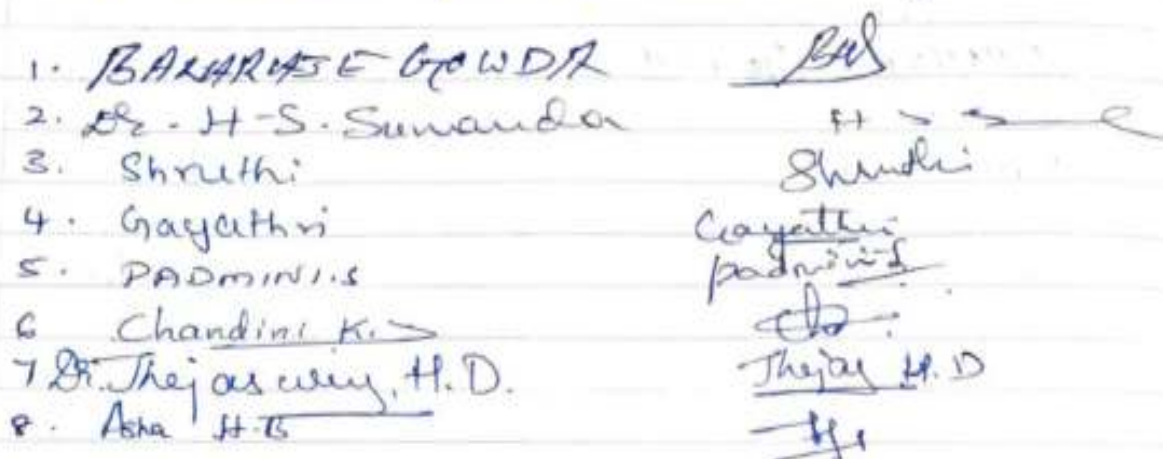 1. BANARASE GOWDA
2. Dr. H-S. Sunanda H S
3. Shruthi Shruthi
4. Gayathri Gayathri
5. PADMINI.S Padmini.S
6 Chandini K.S
7 Dr. Thejaswiny. H.D. Thejas H.D
8. Asha H.B